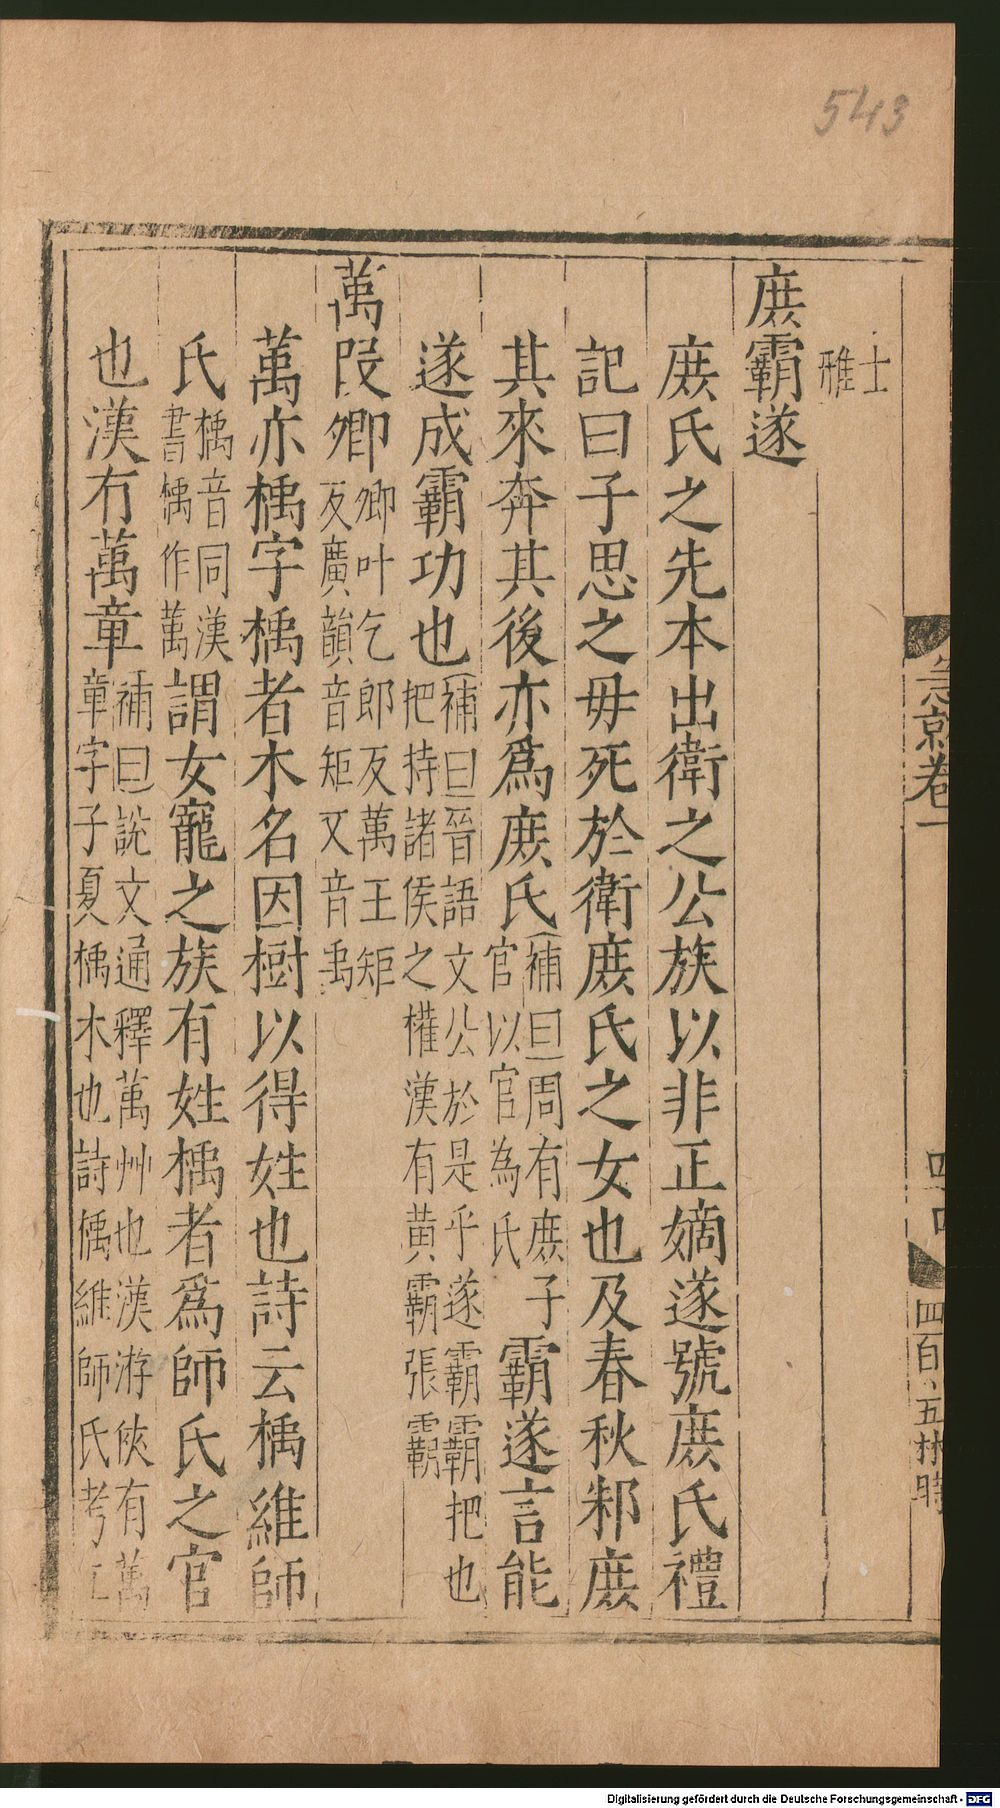 543
士
雅
庶霸遂
庶氏之先本出衛之公族以非正嫡遂號庶氏禮
記曰子思之毋死於衛庶氏之女也及春秋邾庶
其來奔其後亦爲庶氏補曰周有庶子官以官為氏霸遂言能
遂成霸功也補曰晉語文公於是乎遂霸霸把也把持諸侯之權漢有黄霸張霸
萬段卿卿叶乞郎反萬王矩反廣韻音矩又音禹
萬亦楀字楀者木名因樹以得姓也詩云楀維師
氏楀音同漢書楀作萬謂女寵之族有姓楀者爲師氏之官
也漢有萬章補曰說文通釋萬州也漢游俠有萬章字子夏楀木也詩偊維師氏考工
急就卷一
四百五
Digitalisierung gefördert durch die Deutsche Forschungsgemeinschaft - DFG